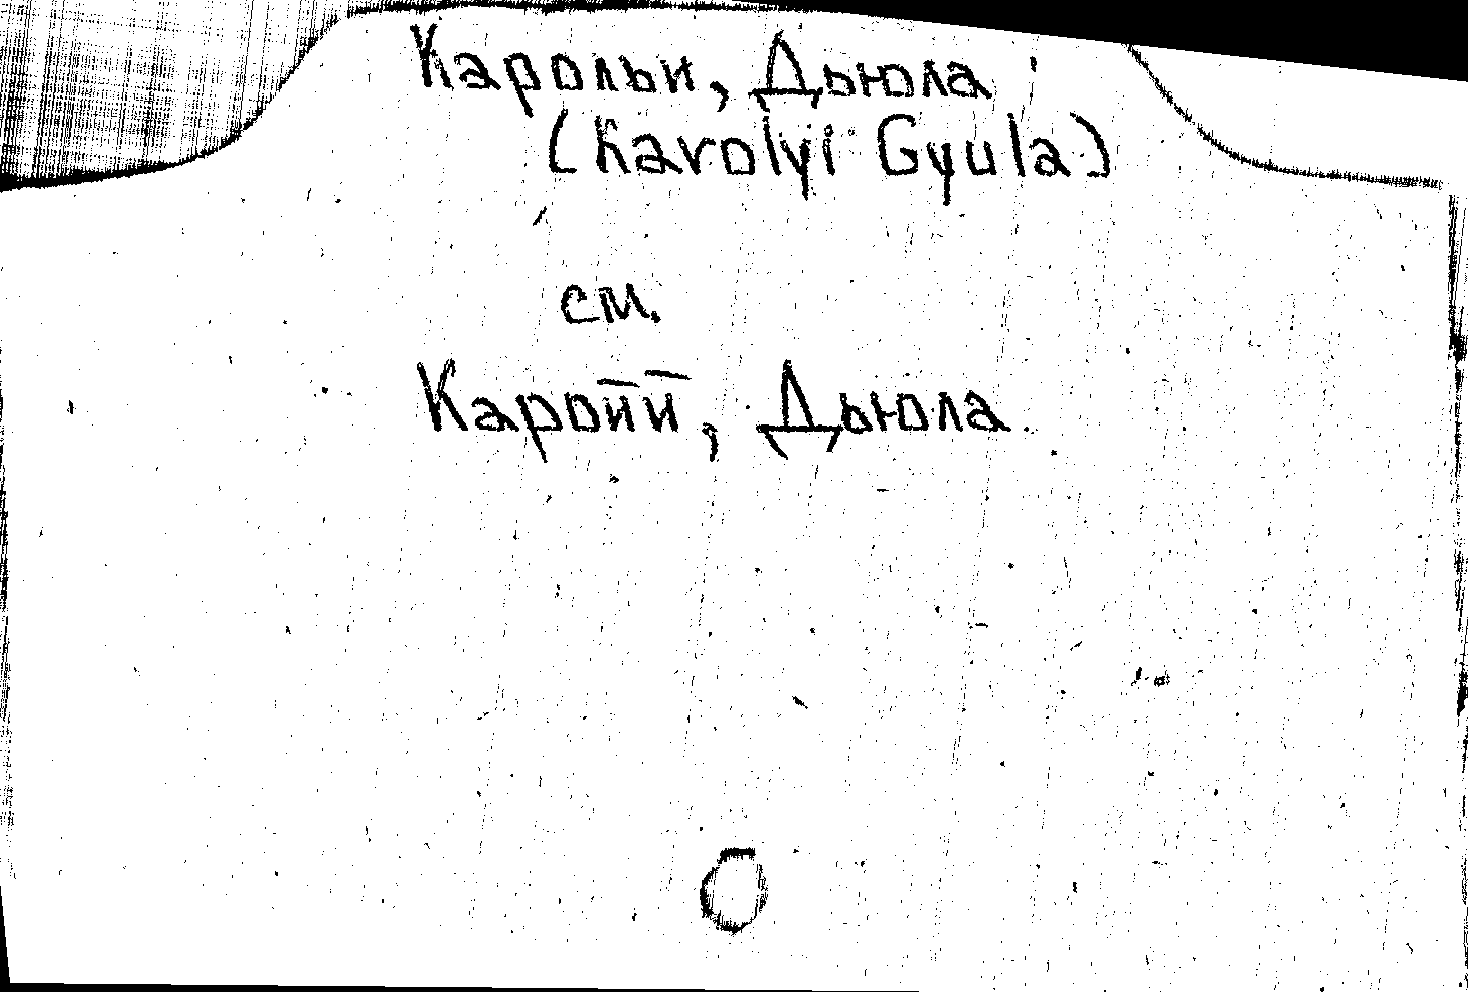 Карольи, Дьюла
(Karolyi Gyula)
см.
Каройй, Дьюла